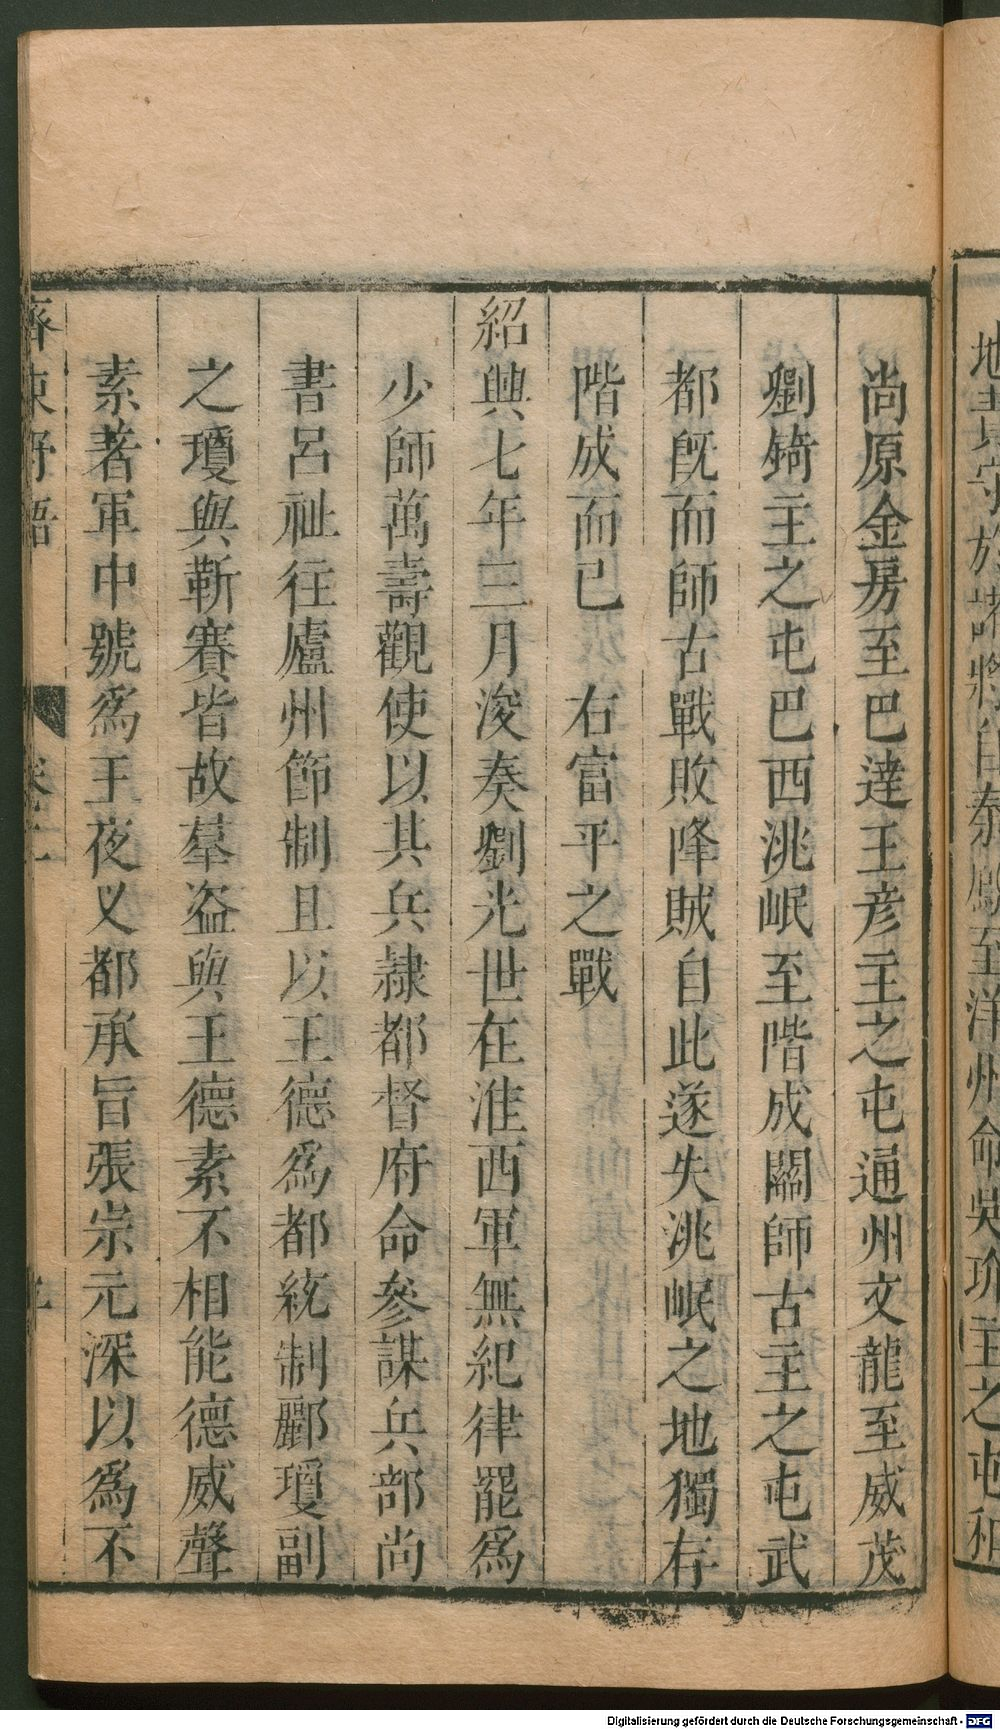 地責守於諸將自秦鳳至洋州命吳玠主之屯和
尚原金房至巴達王彦主之屯通州文龍至威茂
劉錡主之屯巴西洮岷至階成關師古主之屯武
都旣而師古戰敗降賊自此遂失洮岷之地獨存
階成而已　右富平之戰
紹興七年三月浚奏劉光世在淮西軍無紀律罷爲
少師萬壽觀使以其兵隷都督府命參謀兵部尚
書呂祉往廬州節制且以王德爲都統制酈瓊副
之瓊與靳賽皆故羣盜與王德素不相能德威聲
素著軍中號爲王夜叉都承旨張宗元深以爲不
齊東野語　卷二
Digitalisierung gefördert durch die Deutsche Forschungsgemeinschaft - DFG